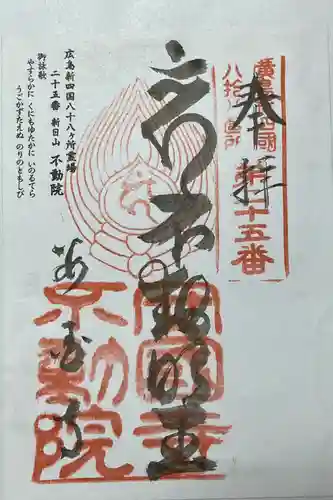 奉拝
廣島新四國
八拾八ヶ所
第二十五番
不動明王
安国寺
不動院
広島新四国八十八ヶ所霊場
二十五番 新日山 不動院
御詠歌
やすらかに くにもゆたかに いのるてら
うごかずたえぬ のりのともしび